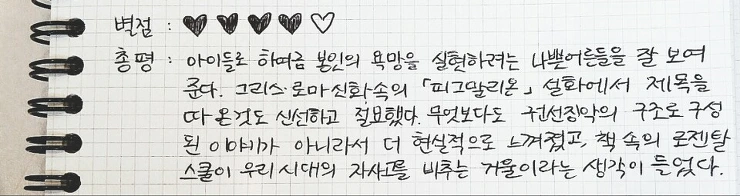 별점 : ♥♥♥♥♡
총평 : 아이들로 하여금 본인의 욕망을 실현하려는 나쁜어른들을 잘 보여
준다. 그리스·로마신화속의 「피그말리온」 설화에서 제목을
따온것도 신선하고 절묘했다. 무엇보다도 권선징악의 구조로 구성
된 이야기가 아니라서 더 현실적으로 느껴졌고, 책 속의 로젠탈
스쿨이 우리시대의 자사고를 비추는 거울이라는 생각이 들었다.